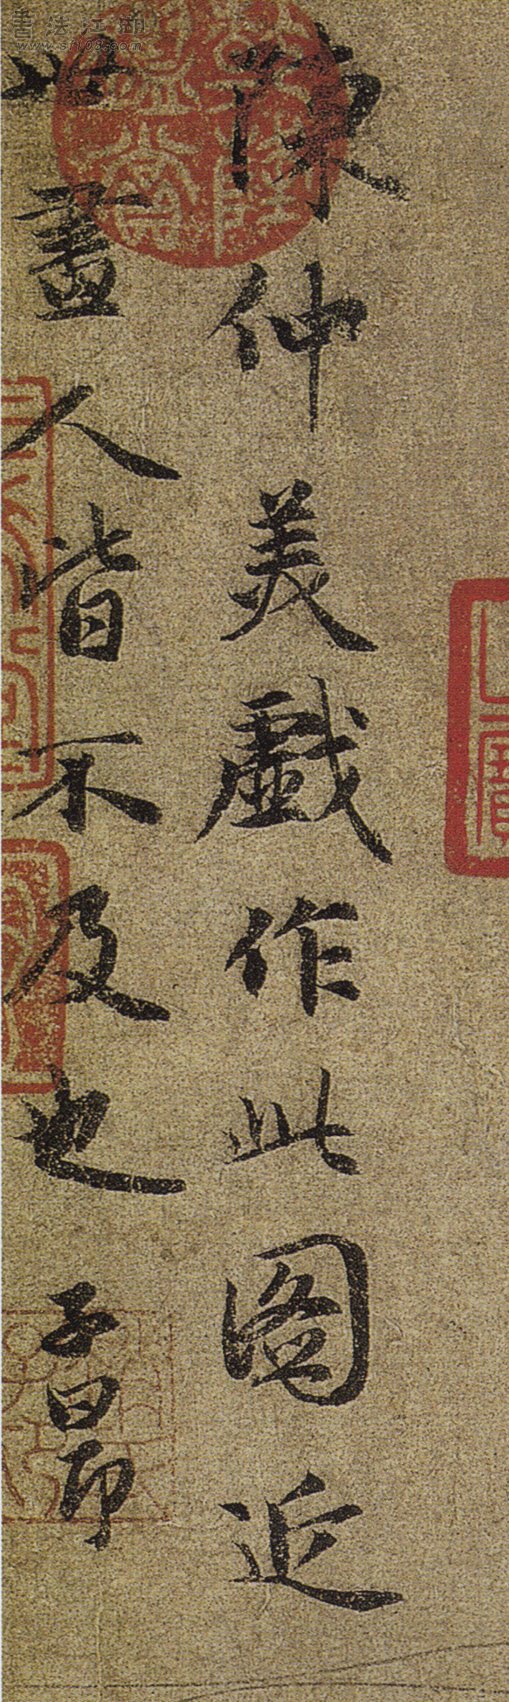 書法江湖
www.sf108.com
乾隆
鑒賞
陳仲美戲作此圖近
世畫人皆不及也 子昂